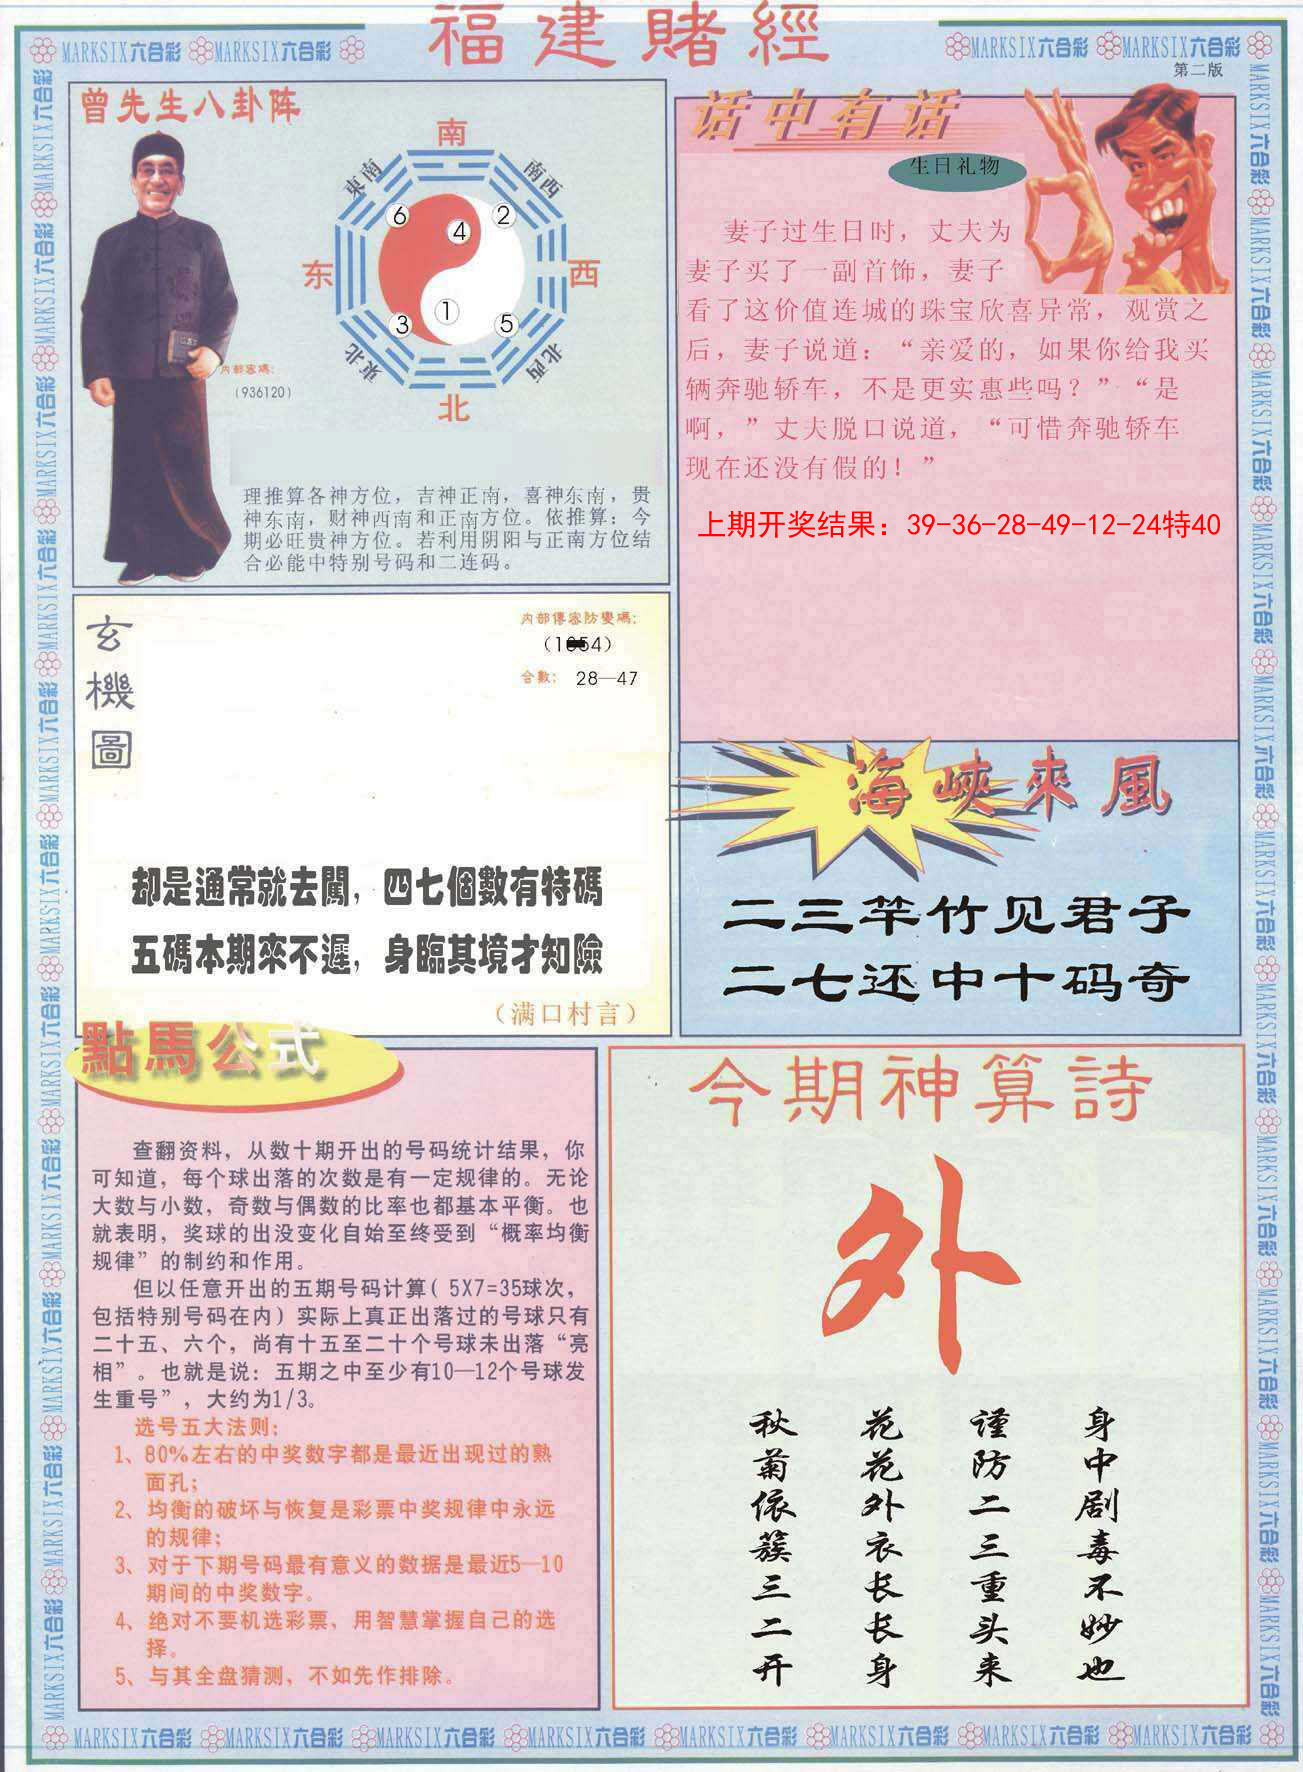 福建賭經
MARKSIX六合彩 MARKSIX六合彩
MARKSIX六合彩 MARKSIX六合彩
第二版
曾先生八卦阵
南
東南
南西
6
2
4
东
西
1
3
5
東北
北西
北
内部密碼：
（936120）
理推算各神方位，吉神正南，喜神东南，贵
神东南，财神西南和正南方位。依推算：今
期必旺贵神方位。若利用阴阳与正南方位结
合必能中特别号码和二连码。
话中有话
生日礼物
妻子过生日时，丈夫为
妻子买了一副首饰，妻子
看了这价值连城的珠宝欣喜异常，观赏之
后，妻子说道：“亲爱的，如果你给我买
辆奔驰轿车，不是更实惠些吗？”“是
啊，”丈夫脱口说道，“可惜奔驰轿车
现在还没有假的！”
上期开奖结果：39-36-28-49-12-24特40
玄機圖
内部傳密防變碼：
合數： 28—47
却是通常就去闖，四七個數有特碼
五碼本期來不遲，身臨其境才知險
（满口村言）
海峽來風
二三竿竹见君子
二七还中十码奇
點馬公式
查翻资料，从数十期开出的号码统计结果，你
可知道，每个球出落的次数是有一定规律的。无论
大数与小数，奇数与偶数的比率也都基本平衡。也
就表明，奖球的出没变化自始至终受到“概率均衡
规律”的制约和作用。
但以任意开出的五期号码计算（5X7=35球次，
包括特别号码在内）实际上真正出落过的号球只有
二十五、六个，尚有十五至二十个号球未出落“亮
相”。也就是说：五期之中至少有10—12个号球发
生重号”，大约为1/3。
选号五大法则：
1、80%左右的中奖数字都是最近出现过的熟
面孔；
2、均衡的破坏与恢复是彩票中奖规律中永远
的规律；
3、对于下期号码最有意义的数据是最近5—10
期间的中奖数字。
4、绝对不要机选彩票，用智慧掌握自己的选
择。
5、与其全盘猜测，不如先作排除。
今期神算詩
外
身中剧毒不妙也
谨防二三重头来
花花外衣长长身
秋菊依簇三二开
MARKSIX六合彩 MARKSIX六合彩 MARKSIX六合彩 MARKSIX六合彩 MARKSIX六合彩 MARKSIX六合彩 MARKSIX六合彩 MARKSIX六合彩